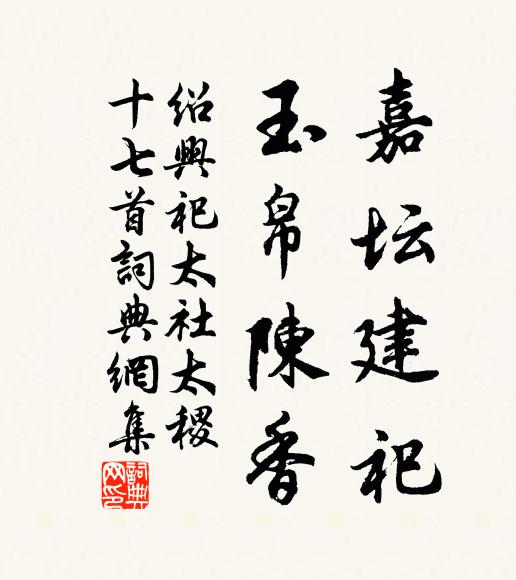 嘉坛建祀
玉帛陳香
紹興祀太社太稷
十七首詞典網集
詞典網印